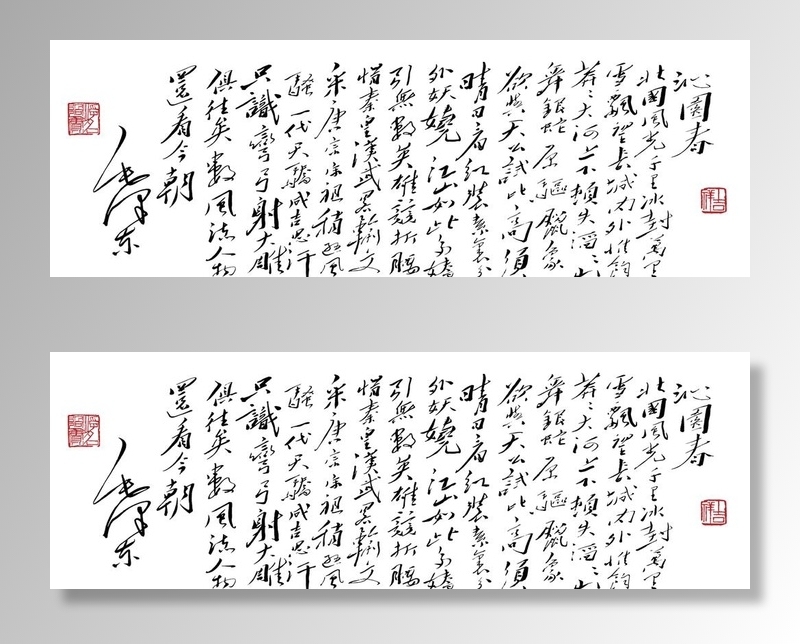 沁園春
北國風光千里冰封萬里
雪飄望長城內外惟餘
莽々大河上下頓失滔々
舞銀蛇原驅蠟象
欲與天公試比高須
晴日看紅裝素裹分
外妖嬈江山如此多嬌
引無數英雄競折腰
惜秦皇漢武略輸文
采唐宗宋祖稍遜風
騷一代天驕成吉思汗
只識彎弓射大雕
俱往矣數風流人物
還看今朝
毛澤東
吉祥
沁園春
北國風光千里冰封萬里
雪飄望長城內外惟餘
莽々大河上下頓失滔々
舞銀蛇原驅蠟象
欲與天公試比高須
晴日看紅裝素裹分
外妖嬈江山如此多嬌
引無數英雄競折腰
惜秦皇漢武略輸文
采唐宗宋祖稍遜風
騷一代天驕成吉思汗
只識彎弓射大雕
俱往矣數風流人物
還看今朝
毛澤東
吉祥